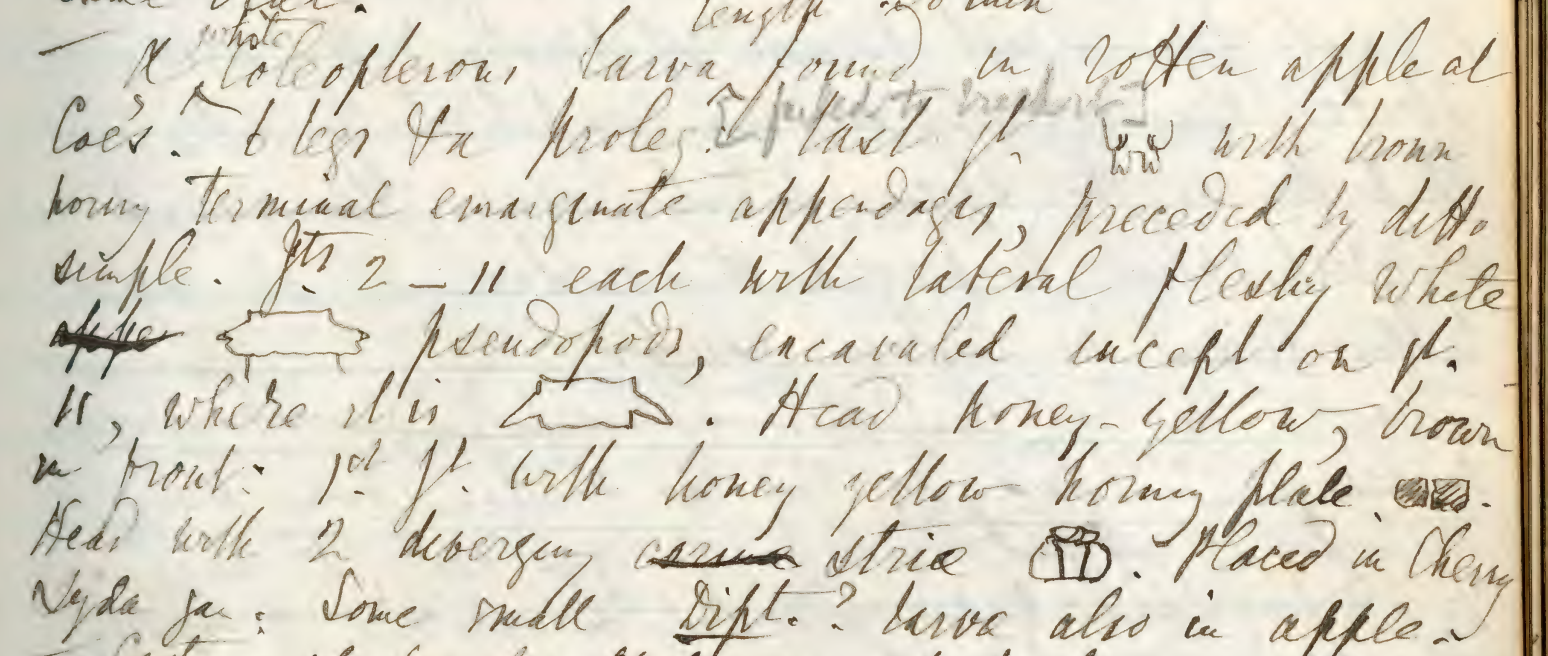 length
white
— A Coleopterous larva found in rotten apple at
[failed to
Coe's. 6 legs & a proleg. last jt. with brown
horny terminal emarginate appendages, preceded by ditto
simple. Jts 2 – 11 each with lateral fleshy white
appe pseudopods, excavated except on jt.
11, where it is . Head honey-yellow, brown
in front: 1st jt. with honey yellow horny plate.
Head with 2 diverging carinae striæ . Placed in Cherry
Lyda jar: Some small Dipt.? larva also in apple.